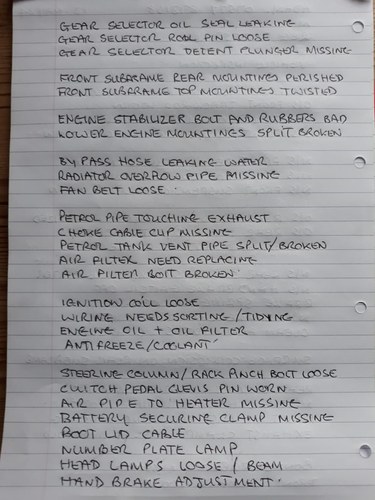 GEAR SELECTOR OIL SEAL LEAKING
GEAR SELECTOR ROLL PIN LOOSE
GEAR SELECTOR DETENT PLUNGER MISSING
FRONT SUBFRAME REAR MOUNTINGS PERISHED
FRONT SUBFRAME TOP MOUNTINGS TWISTED
ENGINE STABILIZER BOLT AND RUBBERS BAD
LOWER ENGINE MOUNTINGS SPLIT BROKEN
BY PASS HOSE LEAKING WATER
RADIATOR OVERFLOW PIPE MISSING
FAN BELT LOOSE.
PETROL PIPE TOUCHING EXHAUST
CHOKE CABLE CLIP MISSING
PETROL TANK VENT PIPE SPLIT/BROKEN
AIR FILTER NEED REPLACING
AIR FILTER BOLT BROKEN
IGNITION COIL LOOSE
WIRING NEEDS SORTING/TIDYING
ENGINE OIL + OIL FILTER
ANTIFREEZE/COOLANT
STEERING COLUMN/RACK PINCH BOLT LOOSE
CLUTCH PEDAL CLEVIS PIN WORN
AIR PIPE TO HEATER MISSING
BATTERY SECURING CLAMP MISSING
BOOT LID CABLE
NUMBER PLATE LAMP
HEAD LAMPS LOOSE / BEAM
HAND BRAKE ADJUSTMENT.